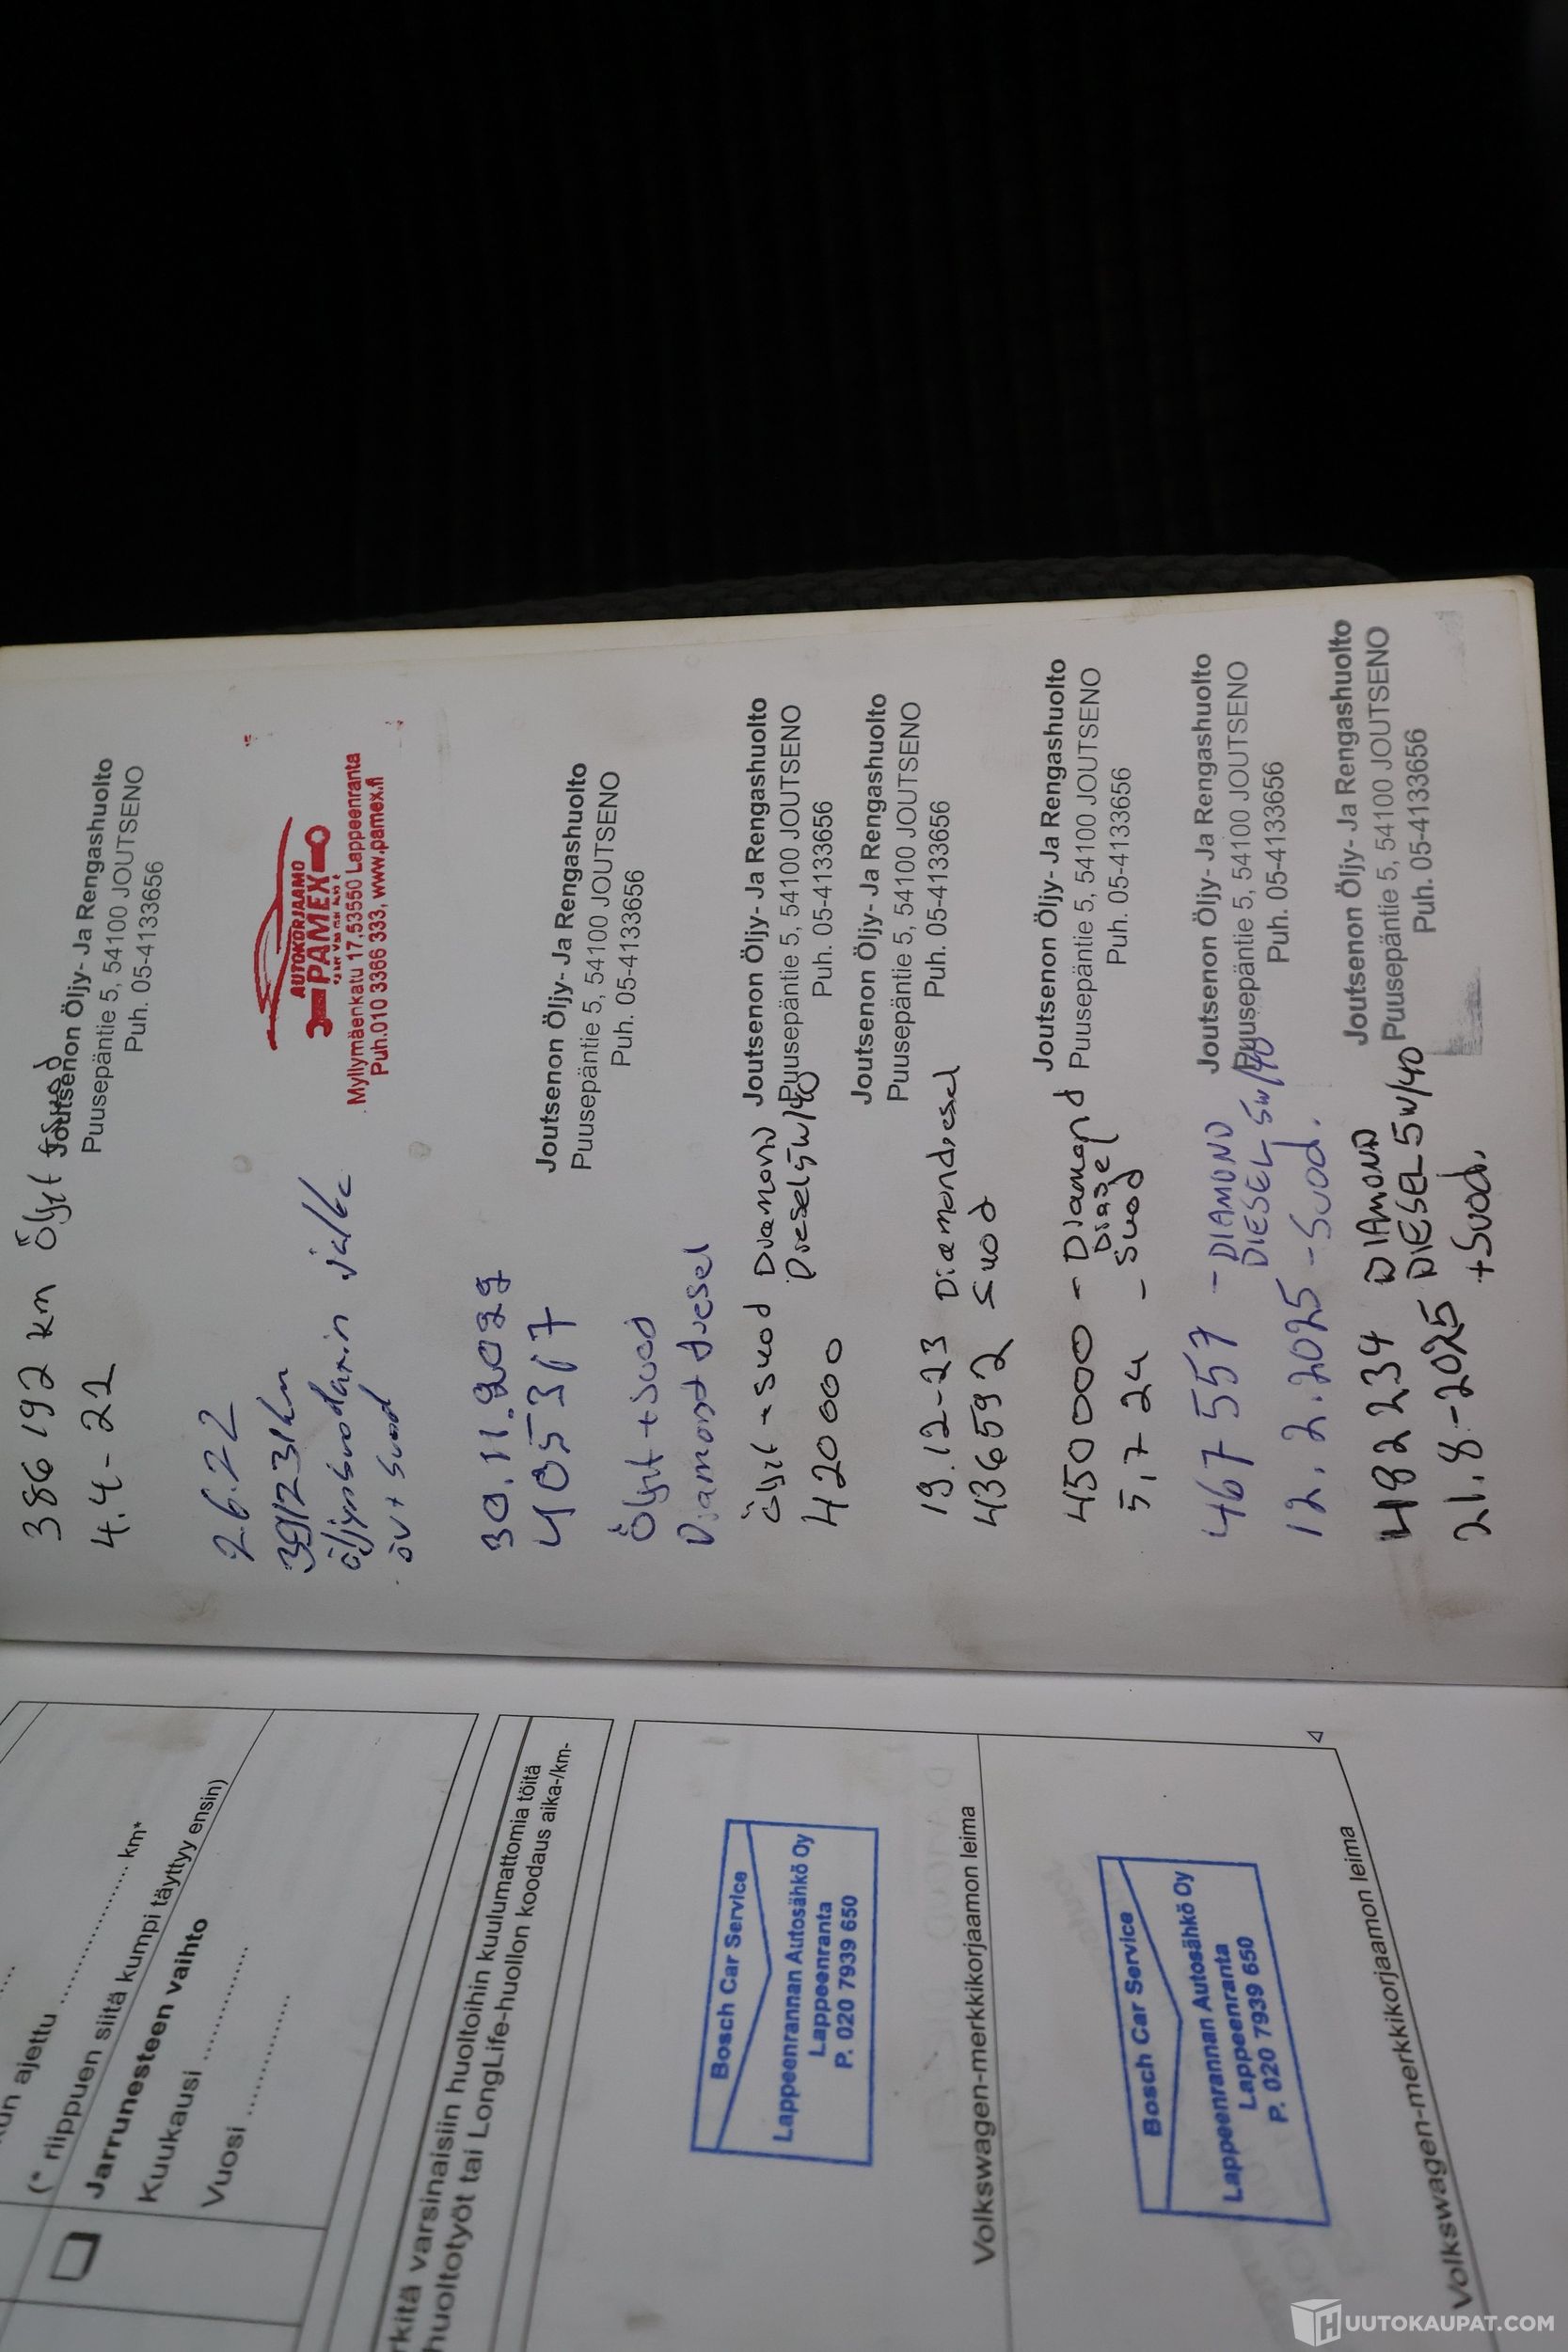 386 192 km Öljyt + suod
4.4-22
Joutsenon Öljy- Ja Rengashuolto
Puusepäntie 5, 54100 JOUTSENO
Puh. 05-4133656
2.6.22
391231km
öljynsuodatin jalka
öv + suod
AUTOKORJAAMO
PAMEX
Myllymäenkatu 17,53550 Lappeenranta
Puh.010 3366 333, www.pamex.fi
30.11.2022
405367
Öljyt + suod
Diamond diesel
Joutsenon Öljy- Ja Rengashuolto
Puusepäntie 5, 54100 JOUTSENO
Puh. 05-4133656
Öljyt + suod Diamond
Diesel 5w/40
420 000
Joutsenon Öljy- Ja Rengashuolto
Puusepäntie 5, 54100 JOUTSENO
Puh. 05-4133656
19.12-23 Diamond diesel
436592 suod
Joutsenon Öljy- Ja Rengashuolto
Puusepäntie 5, 54100 JOUTSENO
Puh. 05-4133656
450 000 - Diamond
Diesel
5,7 24 - suod
Joutsenon Öljy- Ja Rengashuolto
Puusepäntie 5, 54100 JOUTSENO
Puh. 05-4133656
467 557 - DIAMOND
DIESEL 5W/40
12.2.2025 - Suod.
Joutsenon Öljy- Ja Rengashuolto
Puusepäntie 5, 54100 JOUTSENO
Puh. 05-4133656
482 234 DIAMOND
DIESEL 5W/40
21.8.-2025 + Suod.
Joutsenon Öljy- Ja Rengashuolto
Puusepäntie 5, 54100 JOUTSENO
Puh. 05-4133656
ajettu .................... km*
(* riippuen siitä kumpi täyttyy ensin)
Jarrunesteen vaihto
Kuukausi ..................
Vuosi ..................
varsinaisiin huoltoihin kuulumattomia töitä
huoltotyöt tai LongLife-huollon koodaus aika-/km-
Bosch Car Service
Lappeenrannan Autosähkö Oy
Lappeenranta
P. 020 7939 650
Volkswagen-merkkikorjaamon leima
Bosch Car Service
Lappeenrannan Autosähkö Oy
Lappeenranta
P. 020 7939 650
Volkswagen-merkkikorjaamon leima
HUUTOKAUPAT.COM